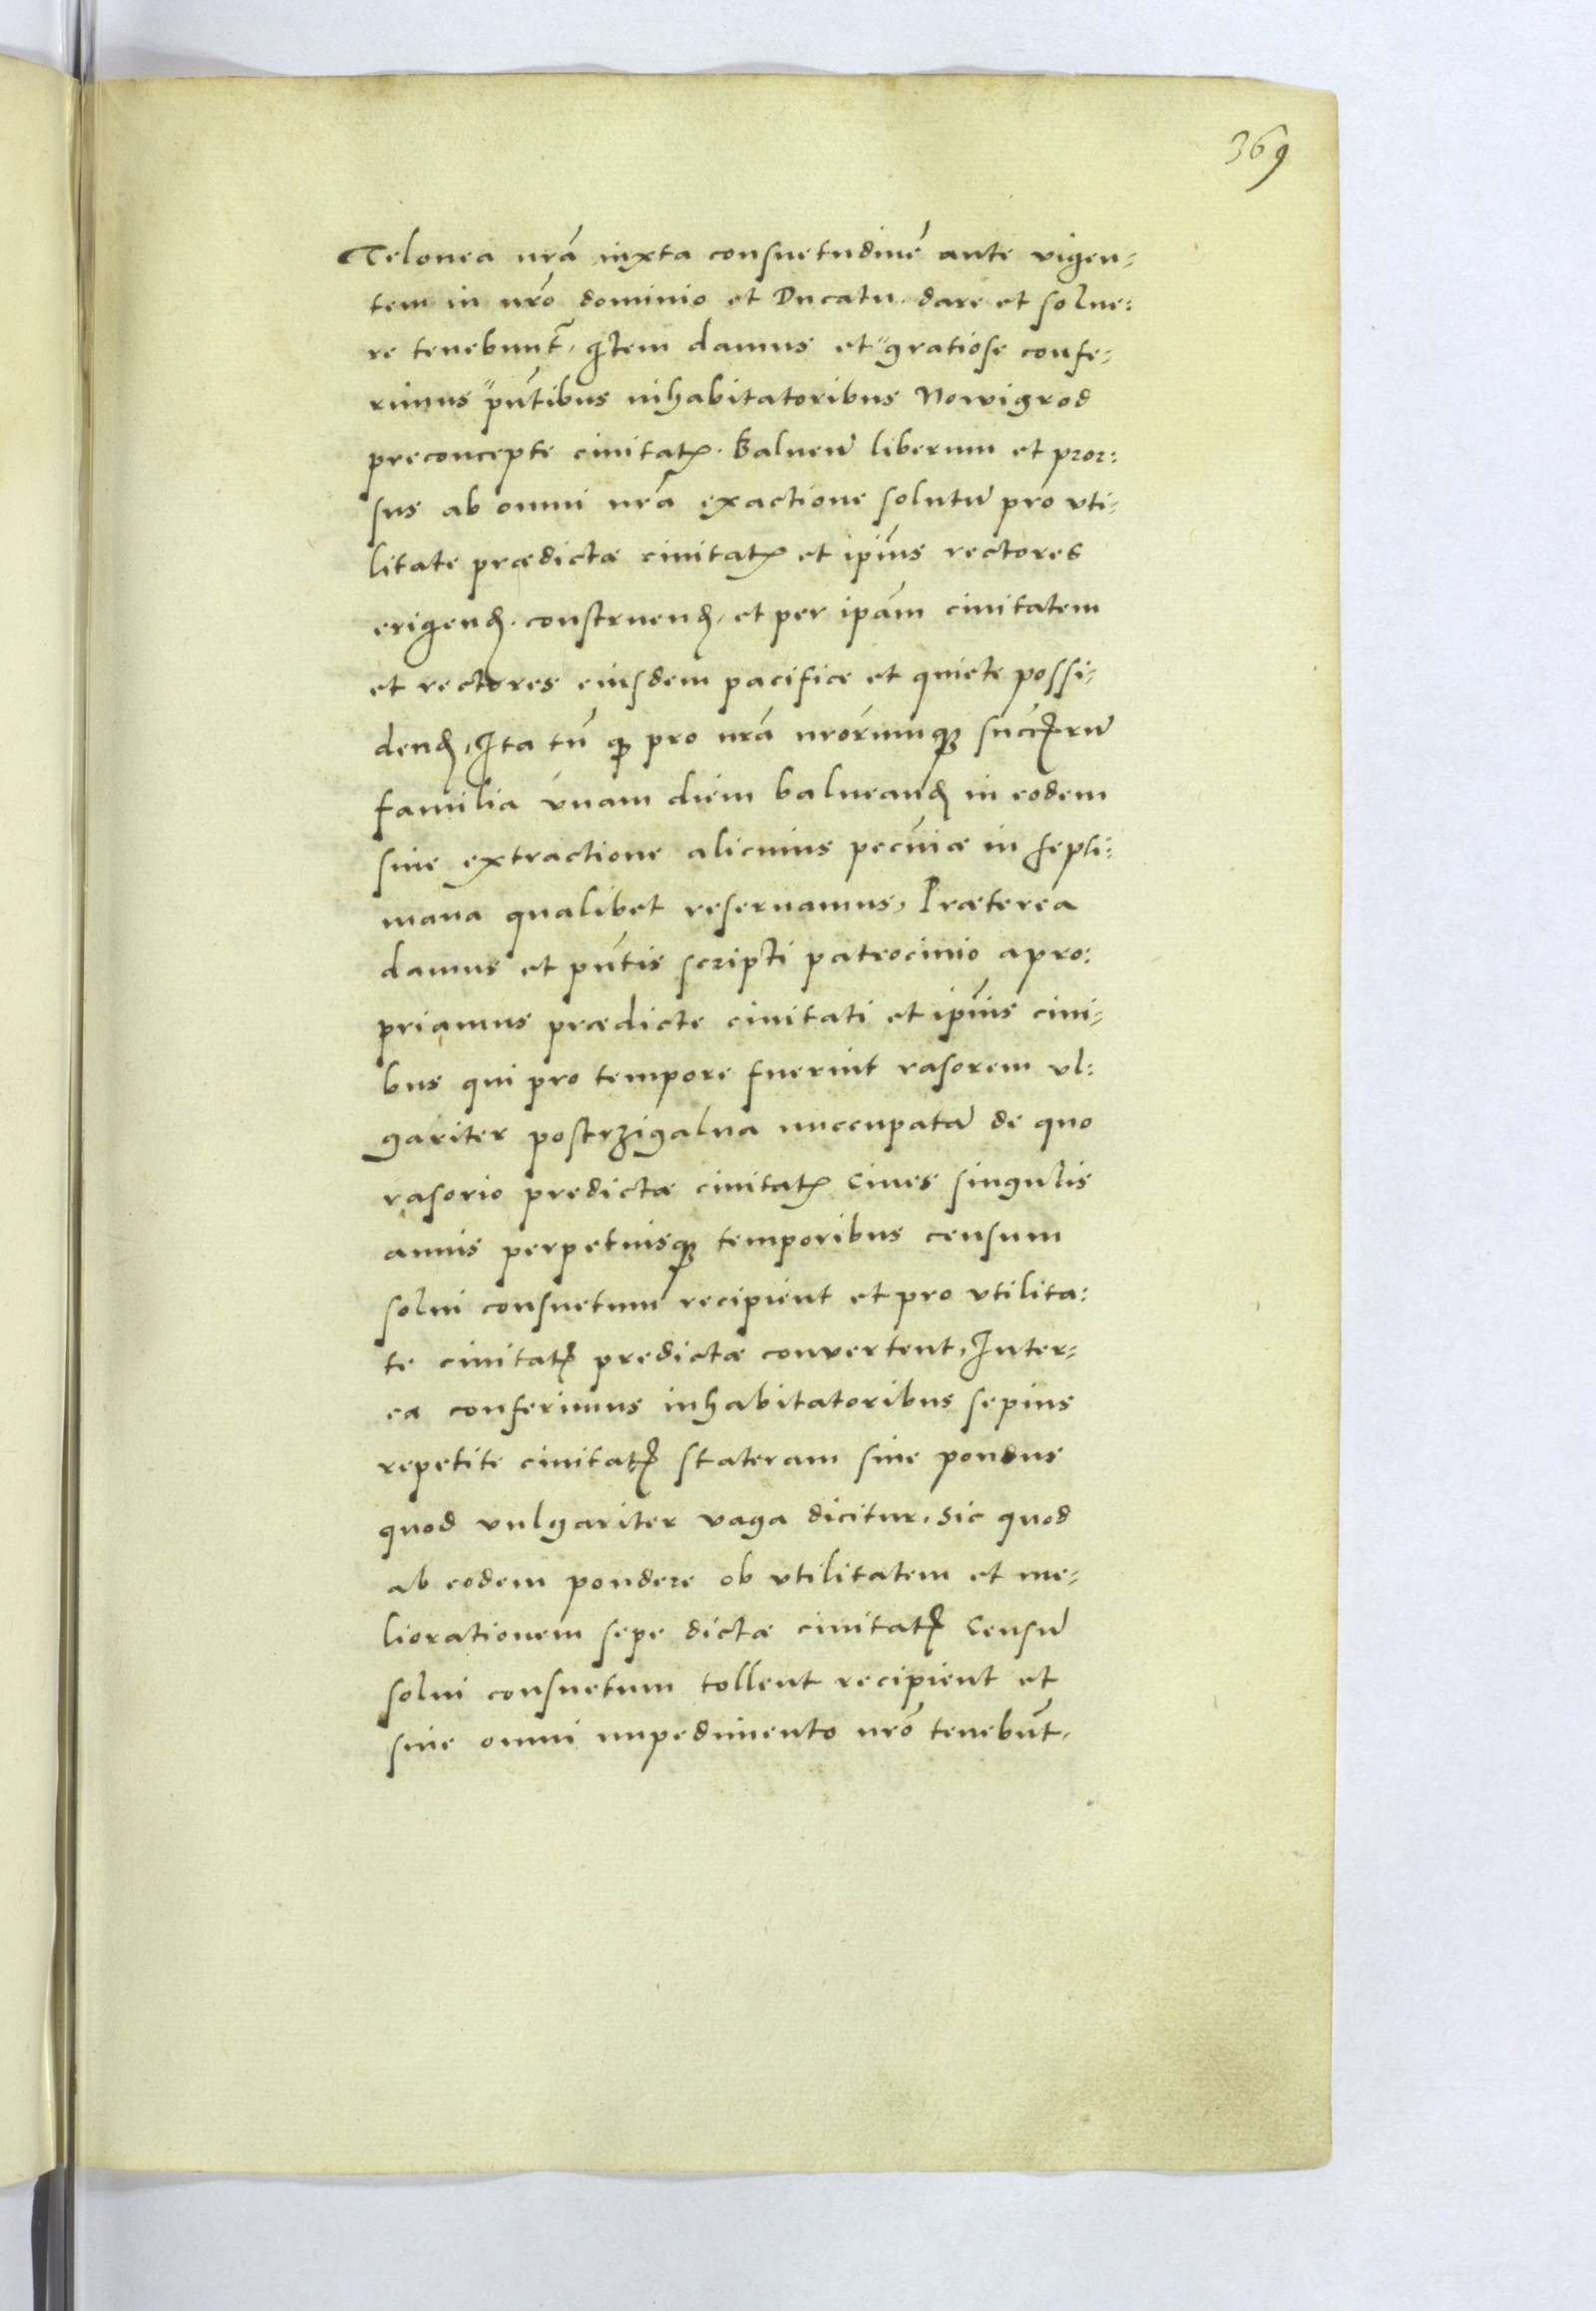 369
Telonea nrã iuxta consuetudinẽ ante vigen-
tem in nrõ dominio et Ducatu. dare et solue:
re tenebunt̃, Item damus et gratiose confe-
rimus pñtibus inhabitatoribus Nowigrod
preconcepte ciuitatꝭ. balneũ liberum et pror:
sus ab omni nrã exactione solutũ pro vti-
litate prædictæ ciuitatꝭ et ipĩus rectores
erigenꝺ. construenꝺ, et per ipãm ciuitatem
et rectores eiusdem pacifice et quiete possi-
denꝺ, Ita tñ ꝙ pro nrã nrõrumqꝫ succꝭrũ
familia vnam diem balneanꝺ in eodem
sine extractione alicuius pecũiæ in septi-
mana qualibet reseruamus, Præterea
damus et pñtis scripti patrocinio apro:
priamus prædicte ciuitati et ipĩus ciui-
bus qui pro tempore fuerint rasorem vl:
gariter postrzigalna nuccupatũ de quo
rasorio predictæ ciuitatꝭ Ciues singulis
annis perpetuisqꝫ temporibus censum
solui consuetum recipient et pro vtilita:
te ciuitatꝭ predictæ convertent, Inter-
ea conferimus inhabitatoribus sepius
repetite ciuitatꝭ stateram siue pondus
quod vulgariter vaga dicitur, sic quod
ab eodem pondere ob vtilitatem et me-
liorationem sepe dictæ ciuitatꝭ Censũ
solui consuetum tollent recipient et
sine omni impedimento nrõ tenebũt,